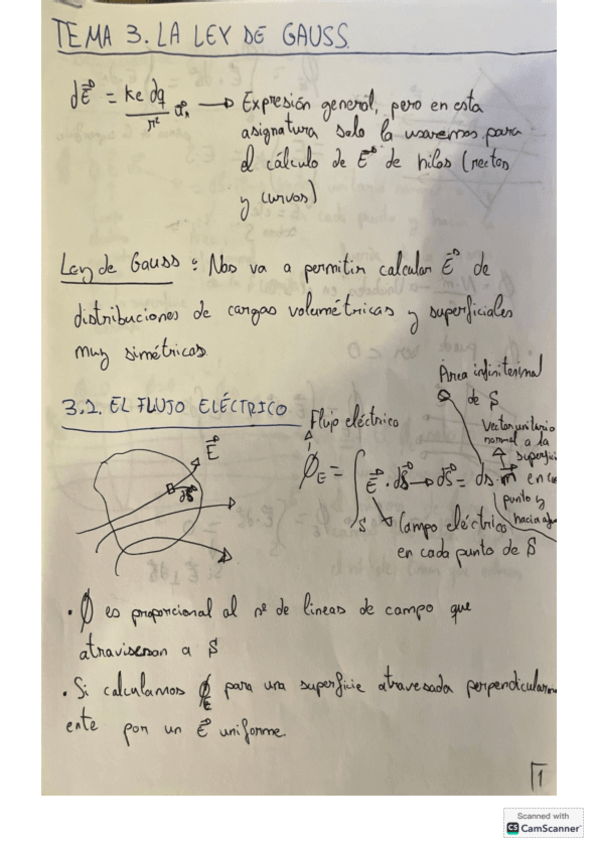 TEMA 3. LA LEY DE GAUSS.
dE⃗ = ke dq / r² u⃗r → Expresión general, pero en esta
asignatura solo la usaremos para
el cálculo de E⃗ de hilos (rectos
y curvos)
Ley de Gauss: Nos va a permitir calcular E⃗ de
distribuciones de cargas volumétricas y superficiales
muy simétricas
3.1. EL FLUJO ELÉCTRICO
Área infinitesimal
de S
Flujo eléctrico
Vector unitario
normal a la
superfici
E⃗
dS⃗
ϕE = ∫S E⃗ · dS⃗ → dS⃗ = ds · n⃗ en
punto y
hacia
Campo eléctrico
en cada punto de S
· ϕ es proporcional al nº de lineas de campo que
atraviesan a S
· Si calculamos ϕE para una superficie atravesada perpendicularm
ente por un E⃗ uniforme.
1
Scanned with
CS CamScanner